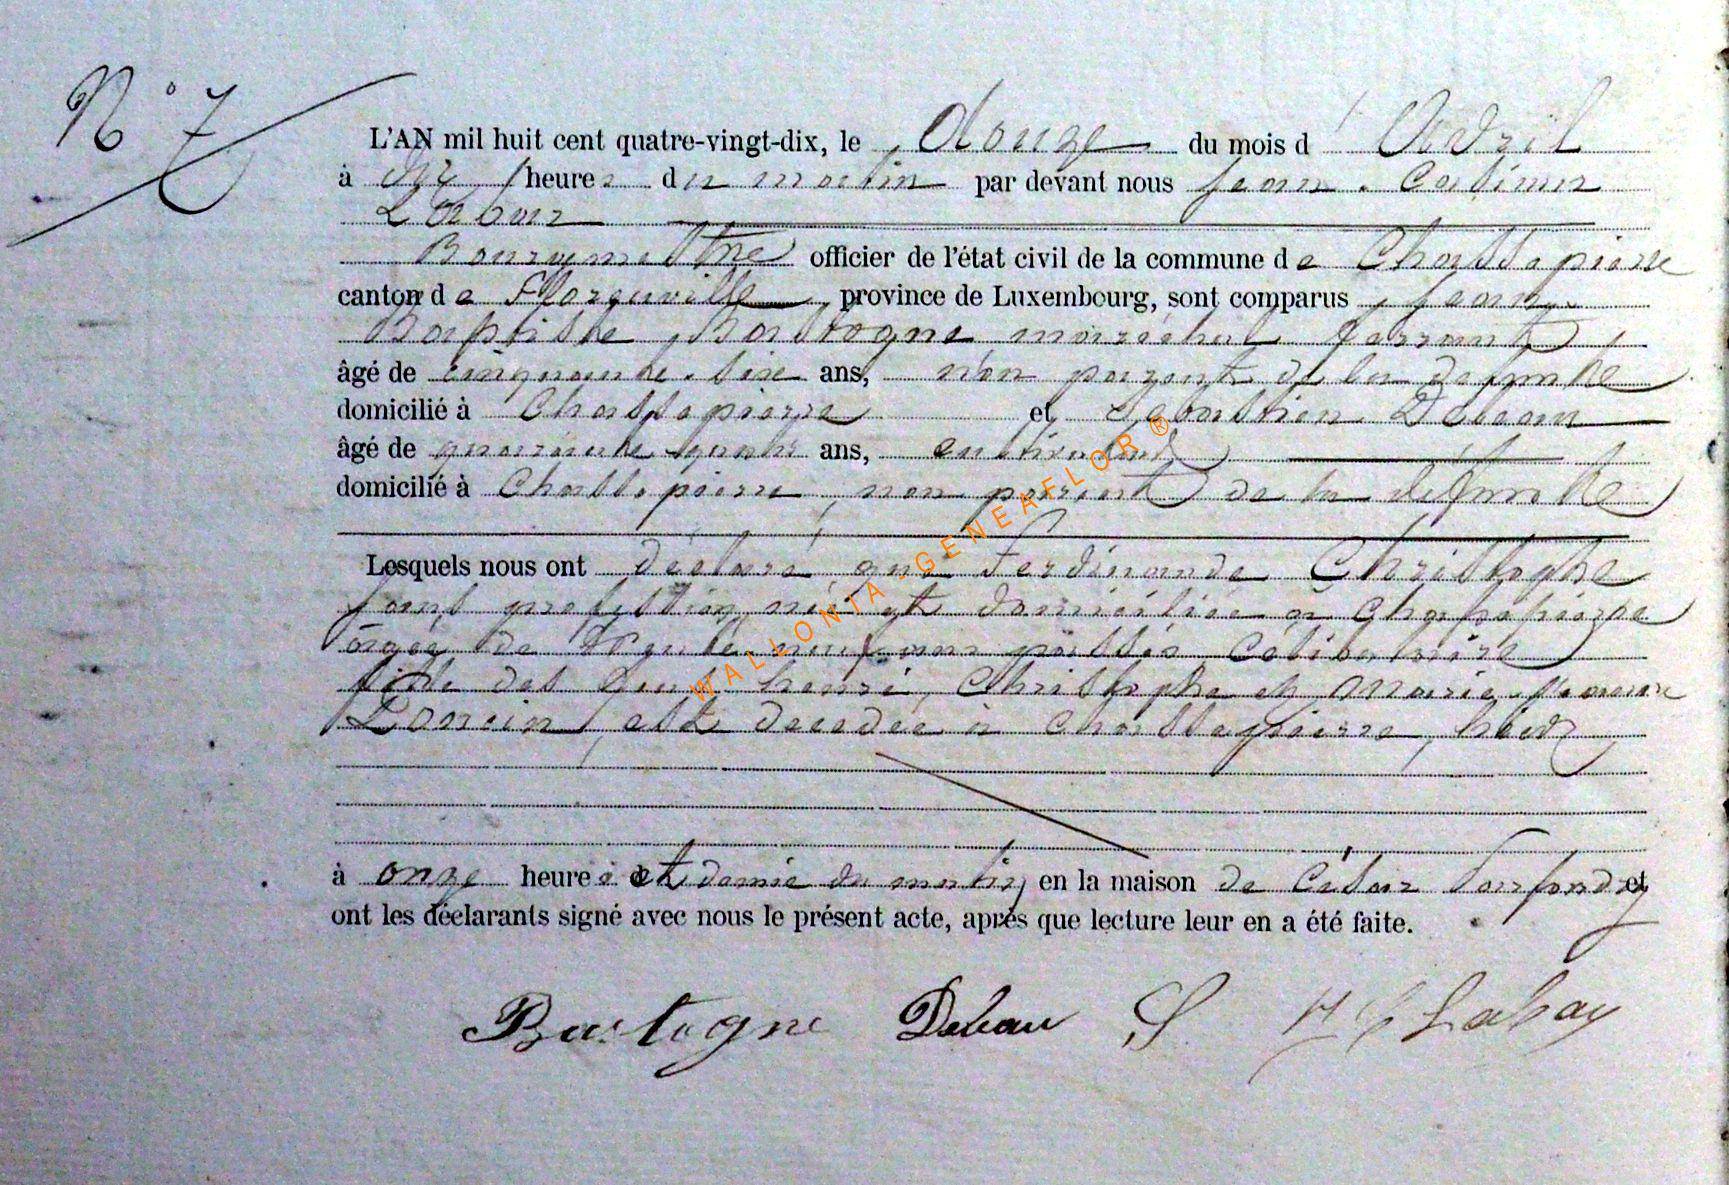 N° 7
L'AN mil huit cent quatre-vingt-dix, le douze du mois d'Avril
à dix heures du matin par devant nous Jean. Casimir
Labay
Bourgmestre officier de l'état civil de la commune de Chassepierre
canton de Florenville, province de Luxembourg, sont comparus Jean
Baptiste Bastogne maréchal ferrant,
âgé de cinquante-six ans, non parent de la défunte
domicilié à Chassepierre et Sébastien Debeau
âgé de quarante ans, cultivateur
domicilié à Chassepierre, non parent de la défunte
Lesquels nous ont déclaré que Ferdinande Christophe
sans profession, née et domiciliée à Chassepierre
âgée de neuf ans passés célibataire
fille des Henri Christophe et Marie
est décédée à Chassepierre, hier
à onze heures et demie du matin en la maison de César et
ont les déclarants signé avec nous le présent acte, après que lecture leur en a été faite.
Bastogne Debeau S Labay
WALLONIA-GENEAFLOR®